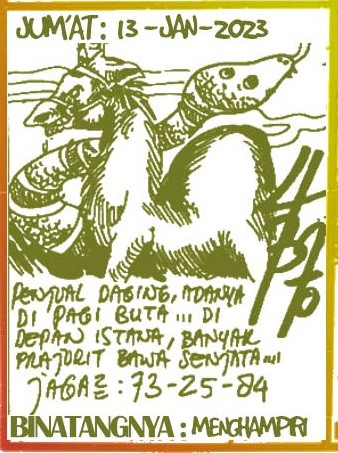 JUM'AT: 13-JAN-2023
PENJUAL DAGING, ADANYA
DI PAGI BUTA... DI
DEPAN ISTANA, BANYAK
PRAJURIT BAWA SENJATA...
JAGA2 : 73-25-84
BINATANGNYA : MENGHAMPIRI